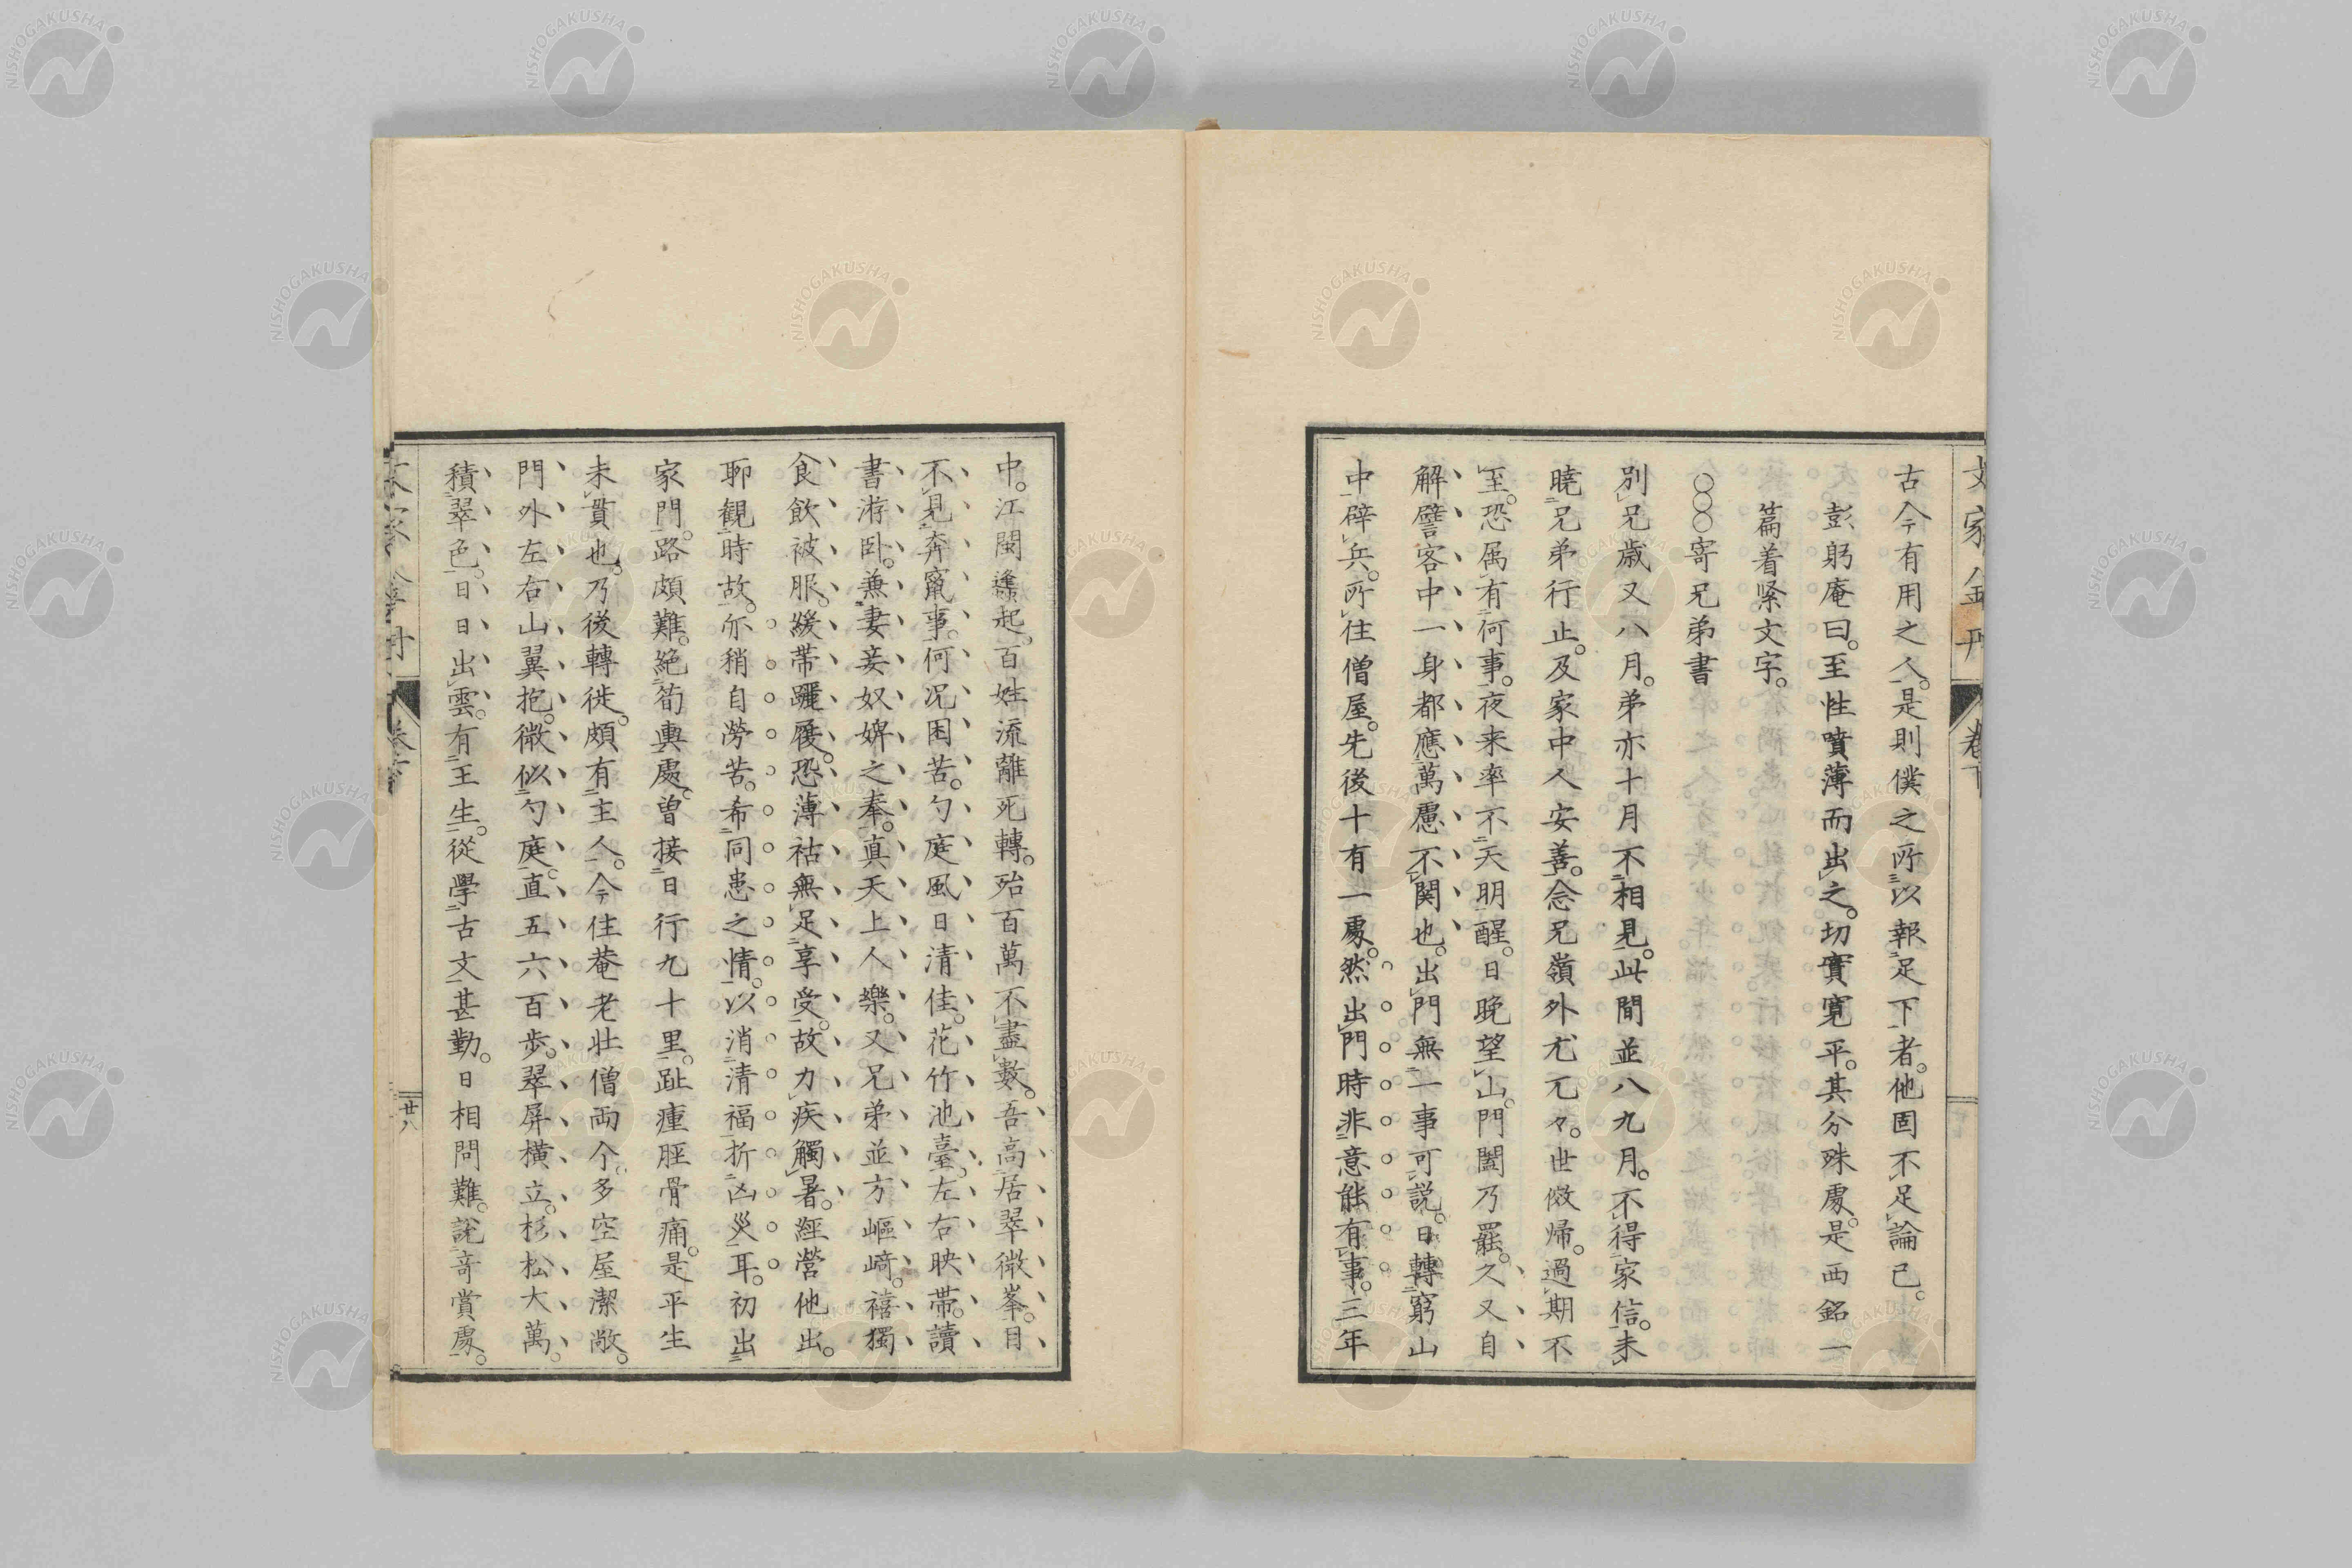 古今有用之人。是則僕之所以報足下者。他固不足論已。
彭躬庵曰。至性噴薄而出之。切實寬平。其分殊處。是西銘一
篇着緊文字。
○○○寄兄弟書
別兄歳又八月。弟亦十月不相見。此間並八九月。不得家信。未
曉兄弟行止。及家中人安善。念兄嶺外尤兀々。世傚帰。過期不
至。恐属有何事。夜来率不天明醒。日晩望山。門闔乃罷。久又自
解譬客中一身都應萬慮不関也。出門無一事可説。日轉窮山
中辟兵。所住僧屋。先後十有一處。然出門時非意能有事。三年
中。江閩逢起。百姓流離死轉。殆百萬不盡數。吾高居翠微峯。目
不見奔竄事。何況困苦。勺庭風日清佳。花竹池臺。左右映帯。讀
書游臥。兼妻妾奴婢之奉。真天上人樂。又兄弟並方嶇﨑。禧獨
食飲被服。緩帯躧履。恐薄祜無足享受。故力疾觸暑。經營他出。
耶観時故。亦稍自勞苦。希同患之情。以消清福折凶災耳。初出
家門。路頗難。絶筍輿處。曽接日行九十里。趾瘇脛骨痛。是平生
未貫也。乃後轉徙。頗有主人。今住菴老壮僧両个。多空屋潔敞。
門外左右山翼抱。微似勺庭。直五六百歩。翠屏横立。杉松大萬。
積翠色。日日出雲。有王生。從學古文甚勤。日相問難。說奇賞處。
文家金丹
卷下
廿八
NISHOGAKUSHA